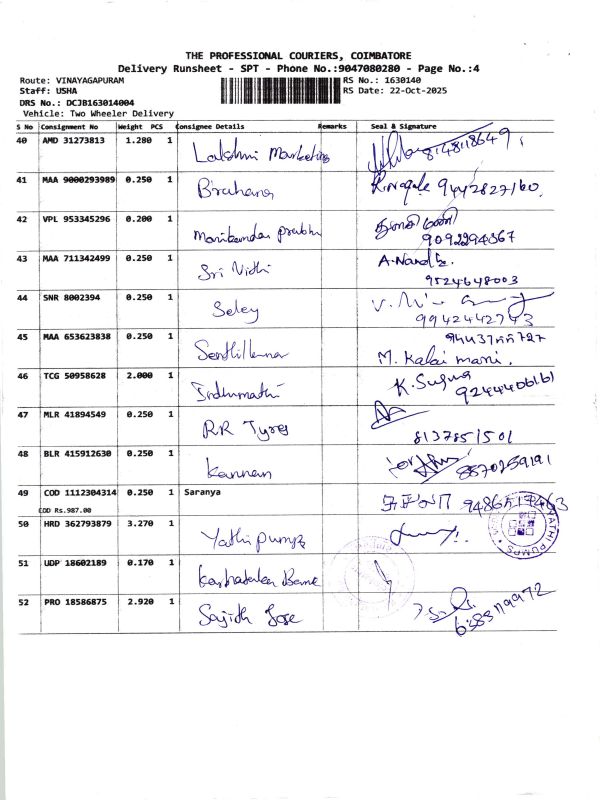 THE PROFESSIONAL COURIERS, COIMBATORE
Delivery Runsheet - SPT - Phone No.:9047080280 - Page No.:4
Route: VINAYAGAPURAM RS No.: 1630140
Staff: USHA RS Date: 22-Oct-2025
DRS No.: DCJB163014004
Vehicle: Two Wheeler Delivery
S No Consignment No Weight PCS Consignee Details Remarks Seal & Signature
40 AMD 31273813 1.280 1 Lakshmi Marketing 8148118649
41 MAA 9000293989 0.250 1 9442827160
42 VPL 953345296 0.200 1 Manikandan prabhu துளசி மணி
9092294367
43 MAA 711342499 0.250 1 Sri Nidhi A.Nand
9524648003
44 SNR 8002394 0.250 1 Seley
9942442743
45 MAA 653623838 0.250 1 Senthilkumar
M. Kalai mani.
46 TCG 50958628 2.000 1 Indhumathi K. Suguna
9244406161
47 MLR 41894549 0.250 1 RR Tyres
8137851501
48 BLR 415912630 0.250 1 Kannan for 8870259191
49 COD 1112304314 0.250 1 Saranya
COD Rs.987.00
50 HRD 362793879 3.270 1 Yathi pumps
YATHI PUMPS
51 UDP 18602189 0.170 1
52 PRO 18586875 2.920 1 Sajith Jose